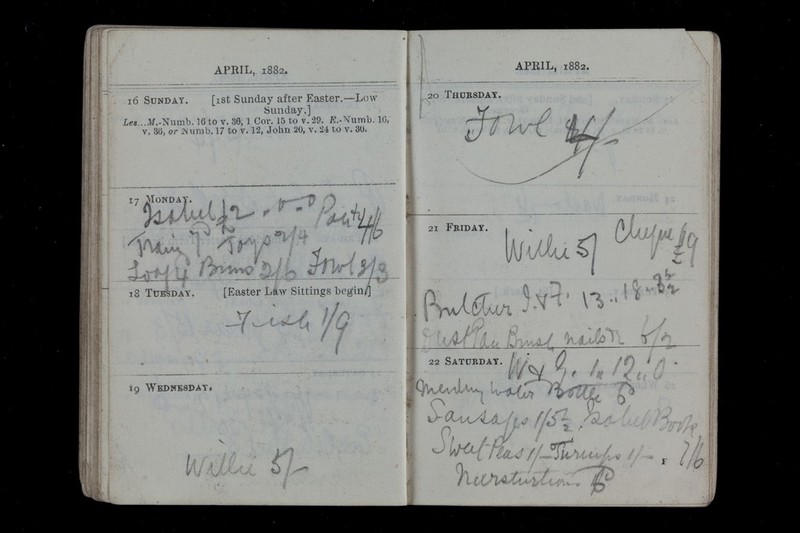 APRIL, 1882.
16 SUNDAY. [1st Sunday after Easter.—Low
Sunday.]
Les...M.-Numb. 16 to v. 36, 1 Cor. 15 to v. 29. E.-Numb. 16,
v. 36, or Numb. 17 to v. 12, John 20, v. 24 to v. 30.
17 MONDAY.
Isabel £2.0.0
Train Toys 2/4 4/6
Loaf 4 Buns 2/6 Fowl 3/3
18 TUESDAY. [Easter Law Sittings begin.]
Fish 1/9
19 WEDNESDAY.
Willie 5/-
APRIL, 1882.
20 THURSDAY.
Fowl 4/-
21 FRIDAY.
Willie 5/ Cheque
Butcher 13..18..
Dust Pan Brush nails
22 SATURDAY. W & G. 1..12..0
Mending water Bottle 6d
Sausages 1/5½ Isabel Book
Sweet Peas 1/- Turnips 1/- F 7/6
Neersturtions 6d